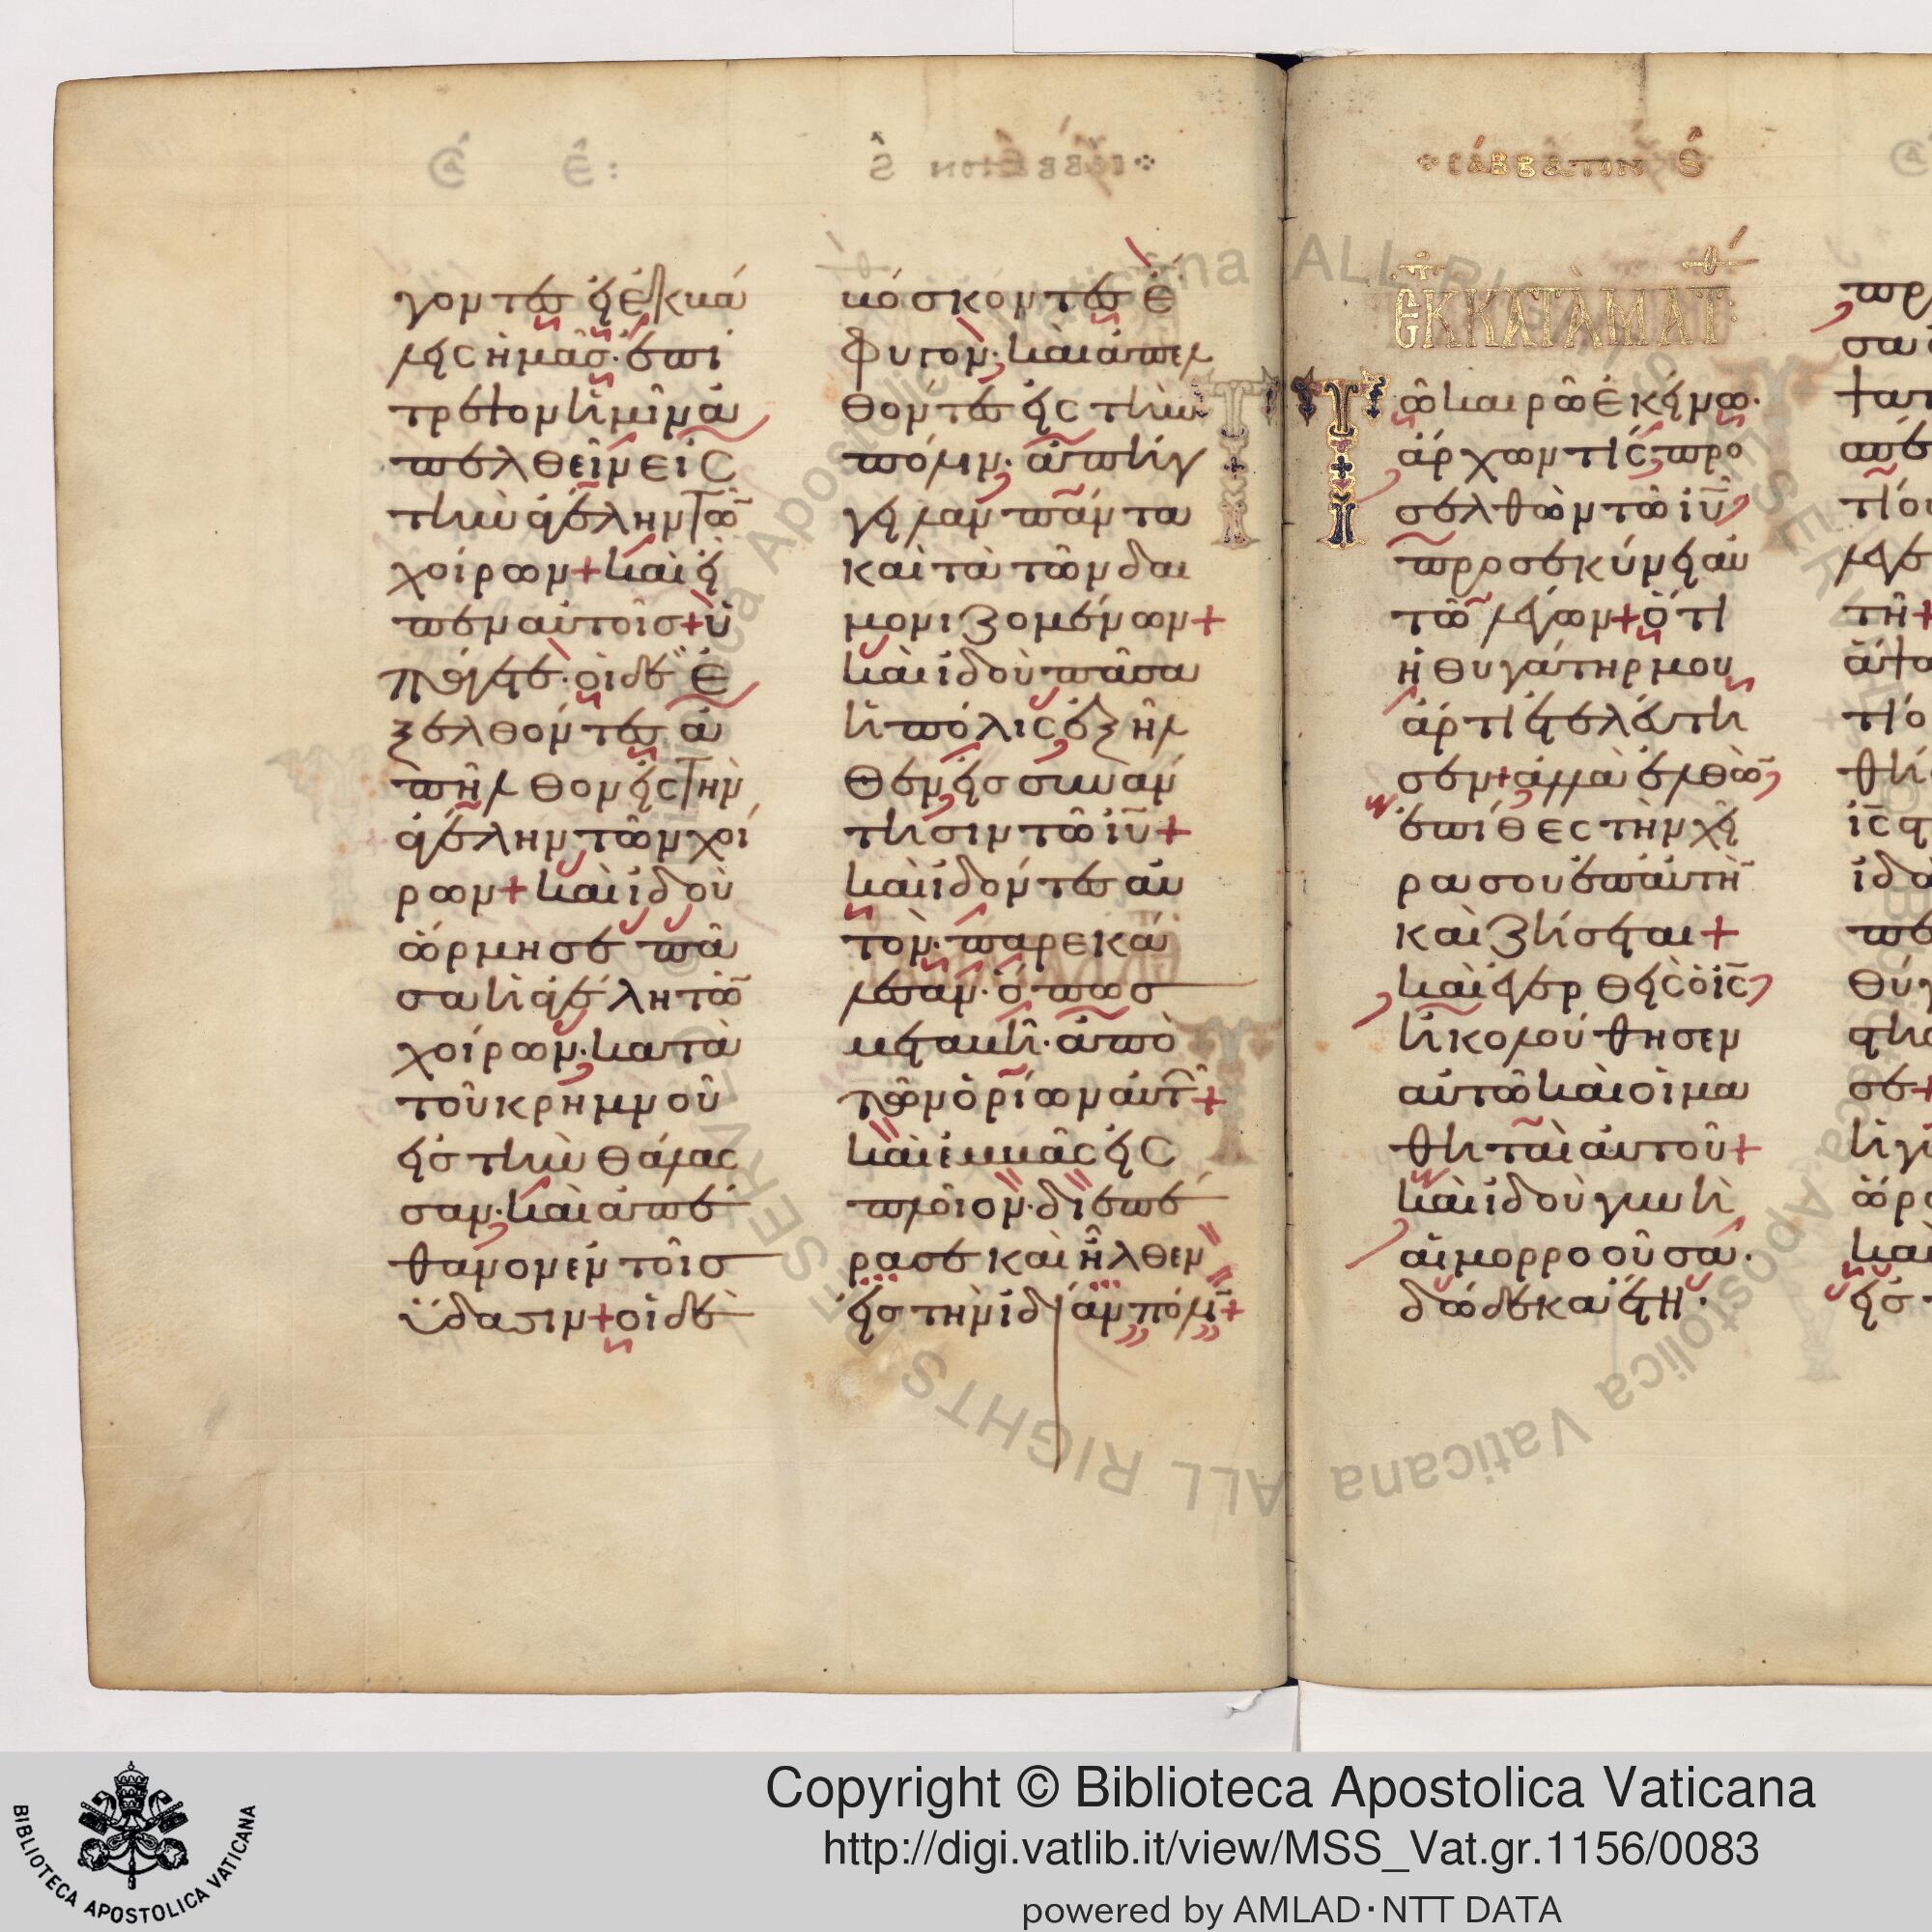 γοντες εἰ ἐκβά
λεις ἡμᾶς· ἐπί
τρεψον ἡμῖν ἀ
πελθεῖν εἰς
τὴν ἀγέλην τῶ
χοίρων + καὶ εἶ
πεν αὐτοῖς + ὑ
πάγετε· οἱ δὲ ἐ
ξελθόντες ἀ
πῆλθον εἰς τὴν
ἀγέλην τῶν χοί
ρων + καὶ ἰδοὺ
ὥρμησε πᾶ
σα ἡ ἀγέλη τῶ
χοίρων· κατὰ
τοῦ κρημνοῦ
εἰς τὴν θάλασ
σαν· καὶ ἀπέ
θανον ἐν τοῖς
ὕδασιν + οἱ δὲ
βόσκοντες ἔ
φυγον· καὶ ἀπελ
θόντες εἰς τὴν
πόλιν· ἀπήγ
γειλαν πάντα
καὶ τὰ τῶν δαι
μονιζομένων +
καὶ ἰδοὺ πᾶσα
ἡ πόλις ἐξῆλ
θεν εἰς συνάν
τησιν τῶ ἰυ +
καὶ ἰδόντες αυ
τὸν· παρεκά
λεσαν· ὅπως
μεταβῆ· ἀπὸ
τῶν ὁρίων αὐτ +
καὶ ἐμβὰς εἰς
πλοῖον· διεπέ
ρασε καὶ ἦλθεν
εἰς τὴν ἰδίαν πόλι +
·:· ΣΑΒΒΑΤΟΝ Ϛ
ΕΚ ΚΑΤΑ ΜΑΤ:
Τῶ καιρῶ ἐκείνω·
ἄρχων τὶς προ
σελθὼν τῶ ἰυ
προσεκύνει αυ
τῶ λέγων + ὅτι
ἡ θυγάτηρ μου
ἄρτι ἐτελεύτη
σεν + ἀλλὰ ἐλθὼ
ἐπίθες τὴν χεῖ
ρα σου ἐπ' αὐτὴ
καὶ ζήσεται +
καὶ ἐγερθεὶς ὁ ις
ἠκολούθησεν
αὐτῶ καὶ οἱ μα
θηταὶ αὐτοῦ +
καὶ ἰδοὺ γυνὴ
αἱμορροοῦσα·
δώδεκα ἔτη·
Copyright © Biblioteca Apostolica Vaticana
http://digi.vatlib.it/view/MSS_Vat.gr.1156/0083
powered by AMLAD·NTT DATA
BIBLIOTECA APOSTOLICA VATICANA